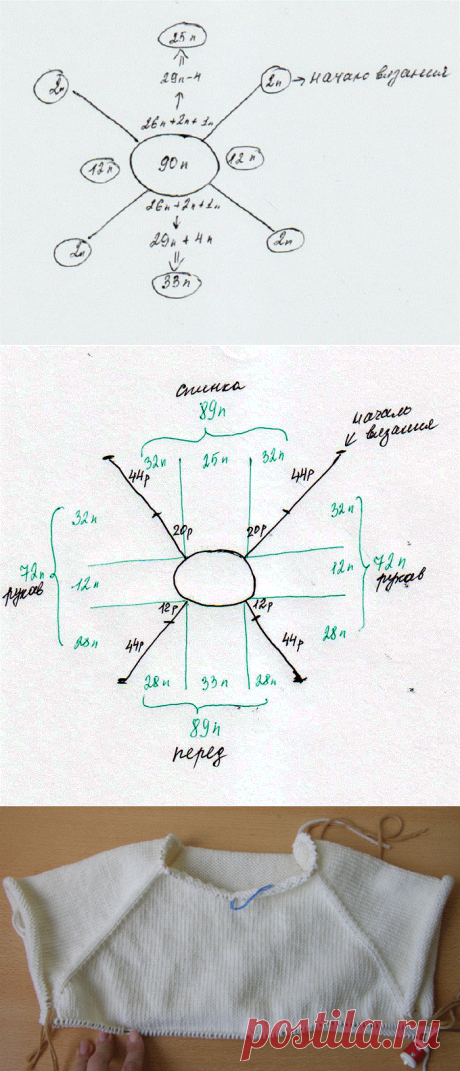 25п
29п-4
2п
2п → начало вязания
26п+2п+1п
12п
90п
12п
26п+2п+1п
29п+4п
2п
2п
33п
спинка
89п
начало
вязания
32п
25п
32п
44р
44р
32п
32п
20р
20р
72п
рукав
12п
12п
72п
рукав
12р
12р
28п
28п
44р
44р
28п
33п
28п
89п
перед
postila.ru